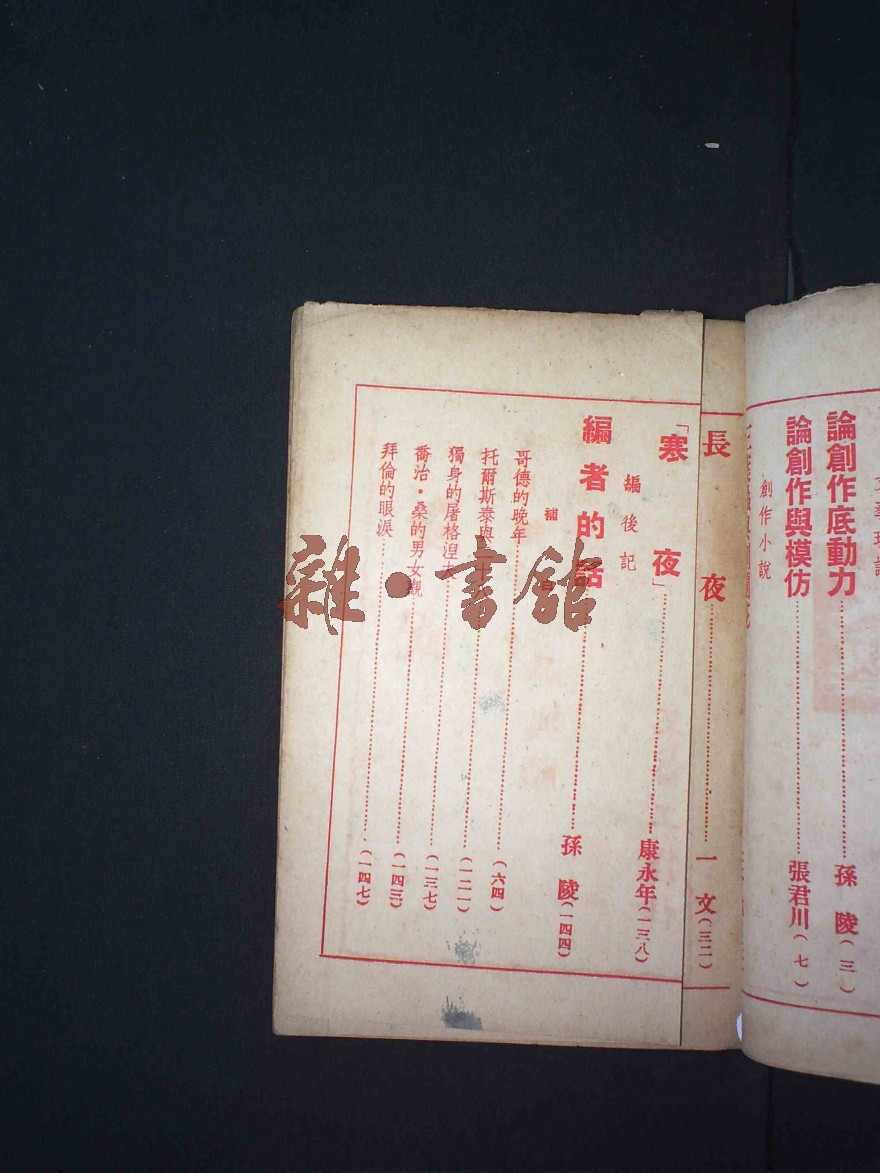 論創作底動力……孫 陵(三)
論創作與模仿……張君川(七)
創作小說
長 夜……一 文(三二)
「寒 夜」……康永年(一三八)
編後記
編者的話……孫 陵(一四四)
補
哥德的晚年……(六四)
托爾斯泰與……(一二一)
獨身的屠格涅夫……(一三七)
喬治·桑的男女觀……(一四三)
拜倫的眼淚……(一四七)
雜·書館